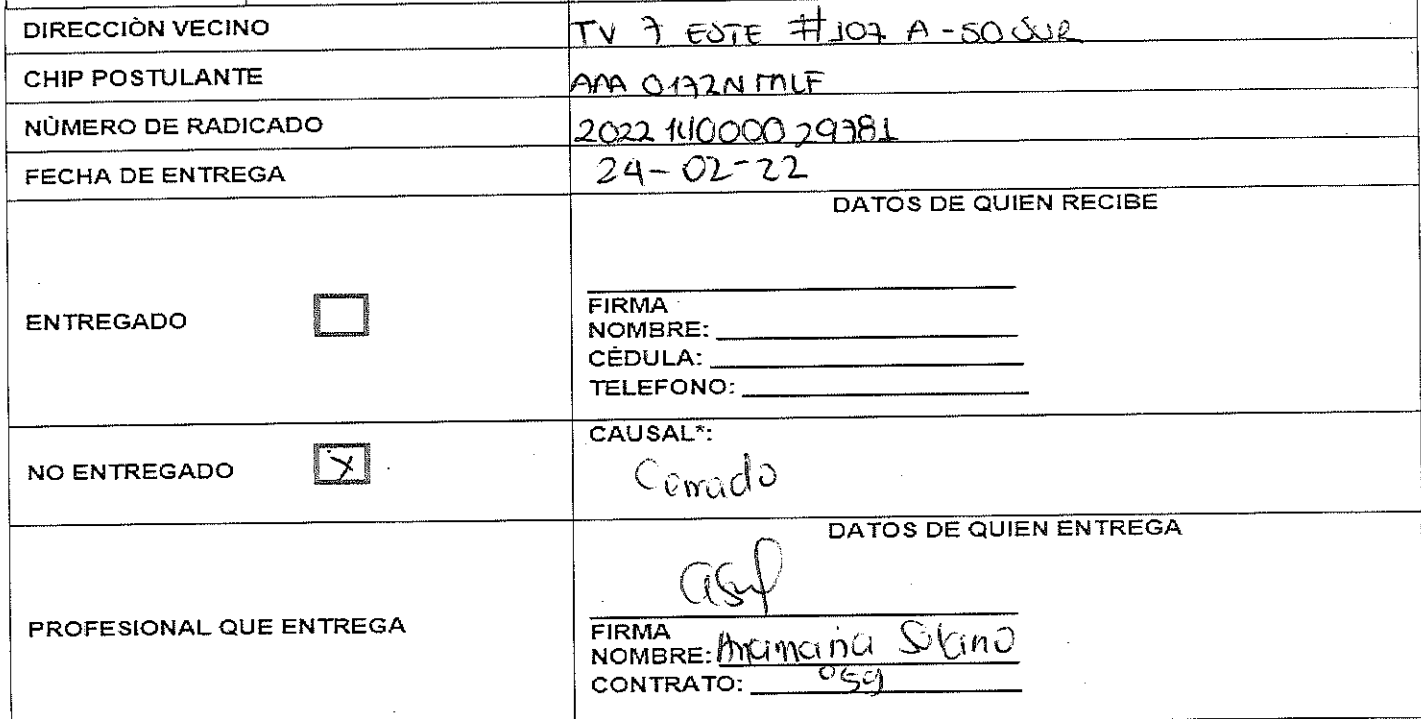 DIRECCIÒN VECINO TV 7 ESTE #107 A-50 SUR
CHIP POSTULANTE AAA 0172NMLF
NÙMERO DE RADICADO 20221400007 29781
FECHA DE ENTREGA 24-02-22
DATOS DE QUIEN RECIBE
ENTREGADO
FIRMA
NOMBRE:
CÉDULA:
TELEFONO:
NO ENTREGADO X
CAUSAL*:
Cerrado
DATOS DE QUIEN ENTREGA
PROFESIONAL QUE ENTREGA
FIRMA
NOMBRE: Anamaria Solano
CONTRATO: 059